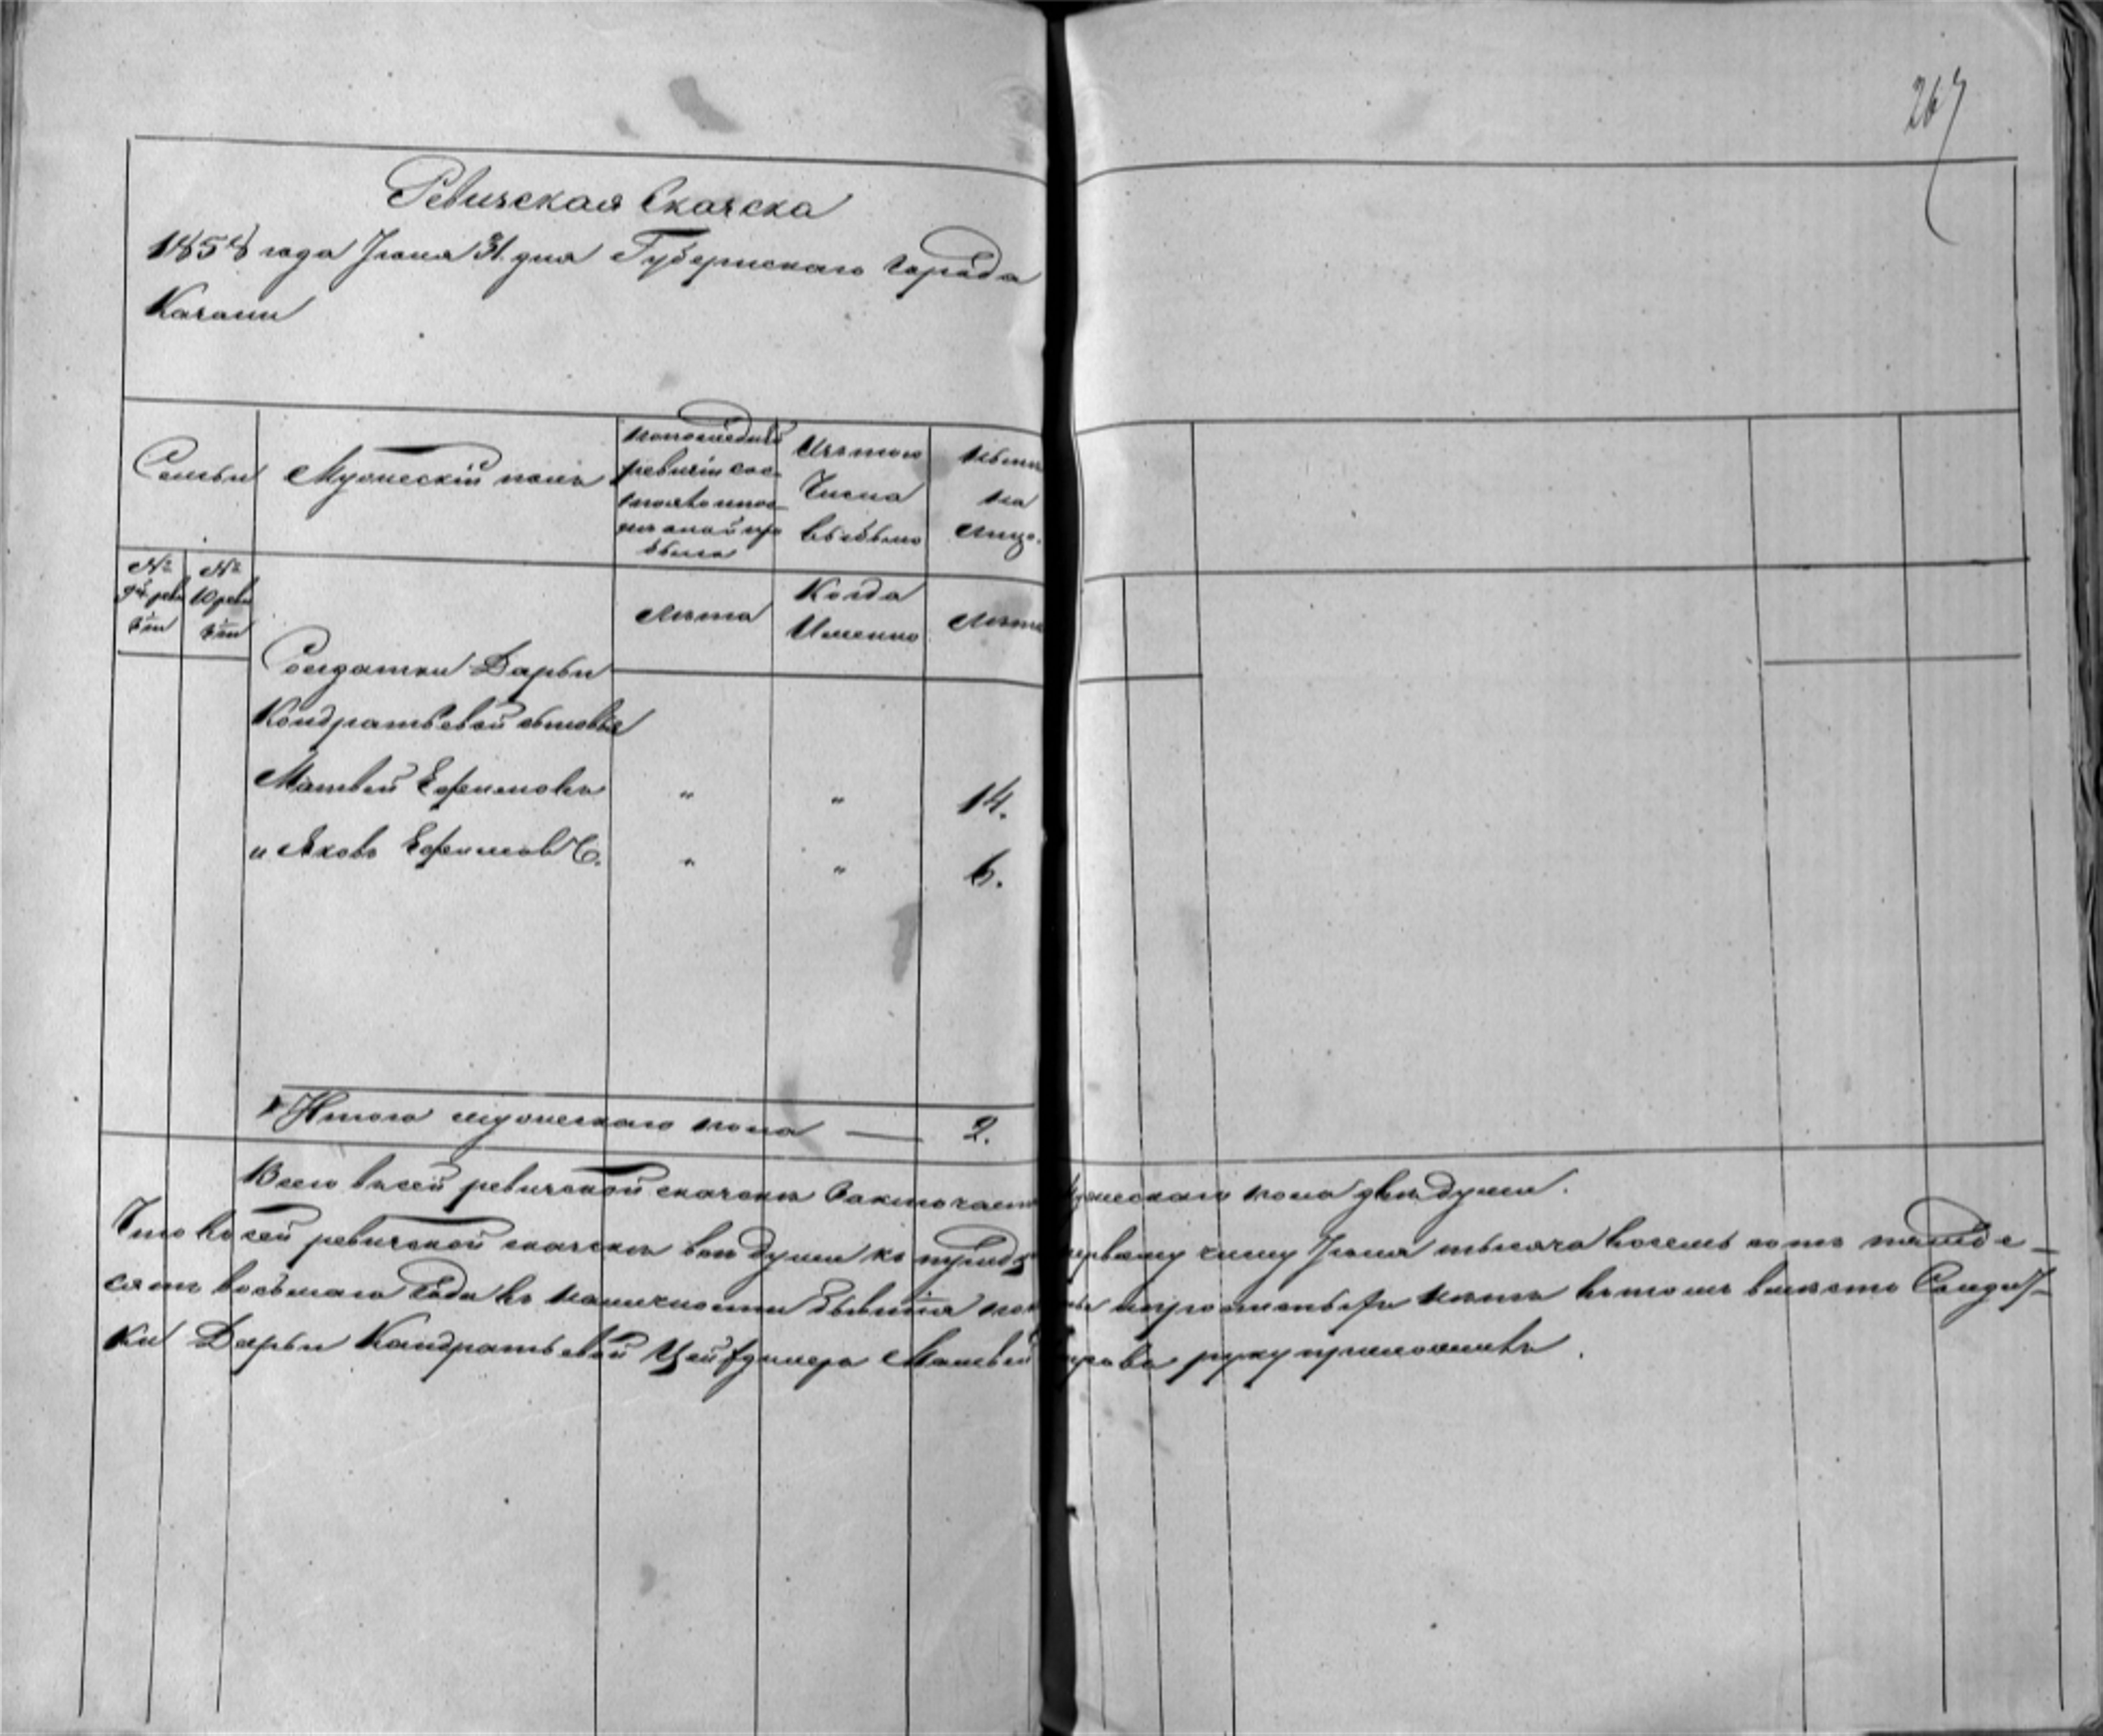 267
Ревизская Сказска
1858 года Іюня 31 дня Губернскаго Города
Казани
Семьи
Мужескій полъ
по последней ревизіи сос-
тояло и после
оной при
было
Изъ того
Числа
выбыло
Ныне
на
лицо.
№
9й реви
зіи
№
10 реви
зіи
Лета
Когда
Именно
Лета
Солдатки Дарьи
Кондратьевой
Матвей Ефимовъ " " 14.
и Яковъ Ефимовъ " " 6.
Итого мужескаго пола — 2.
Всего въ сей ревизской сказске Заключается мужескаго пола две души.
Что въ сей ревизской сказске все души къ первому числу Іюня тысяча восемь сотъ пятьде-
сятъ восьмаго Года въ наличности бывшія и пропущенныхъ нетъ въ томъ вместо Солдат-
ки Дарьи Кондратьевой Цейгдинеръ Матвей руку приложилъ.